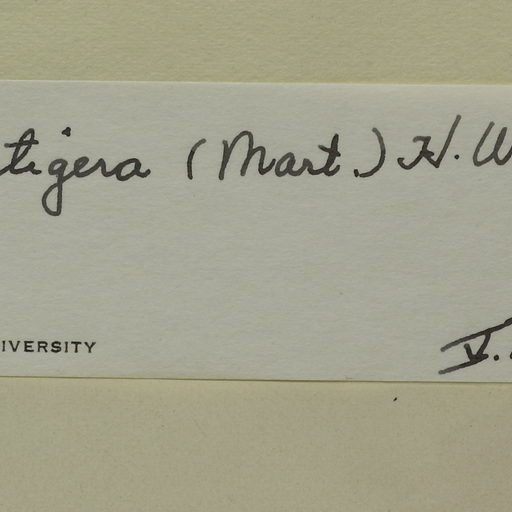 tigera (Mart.) H. W
IVERSITY
V.